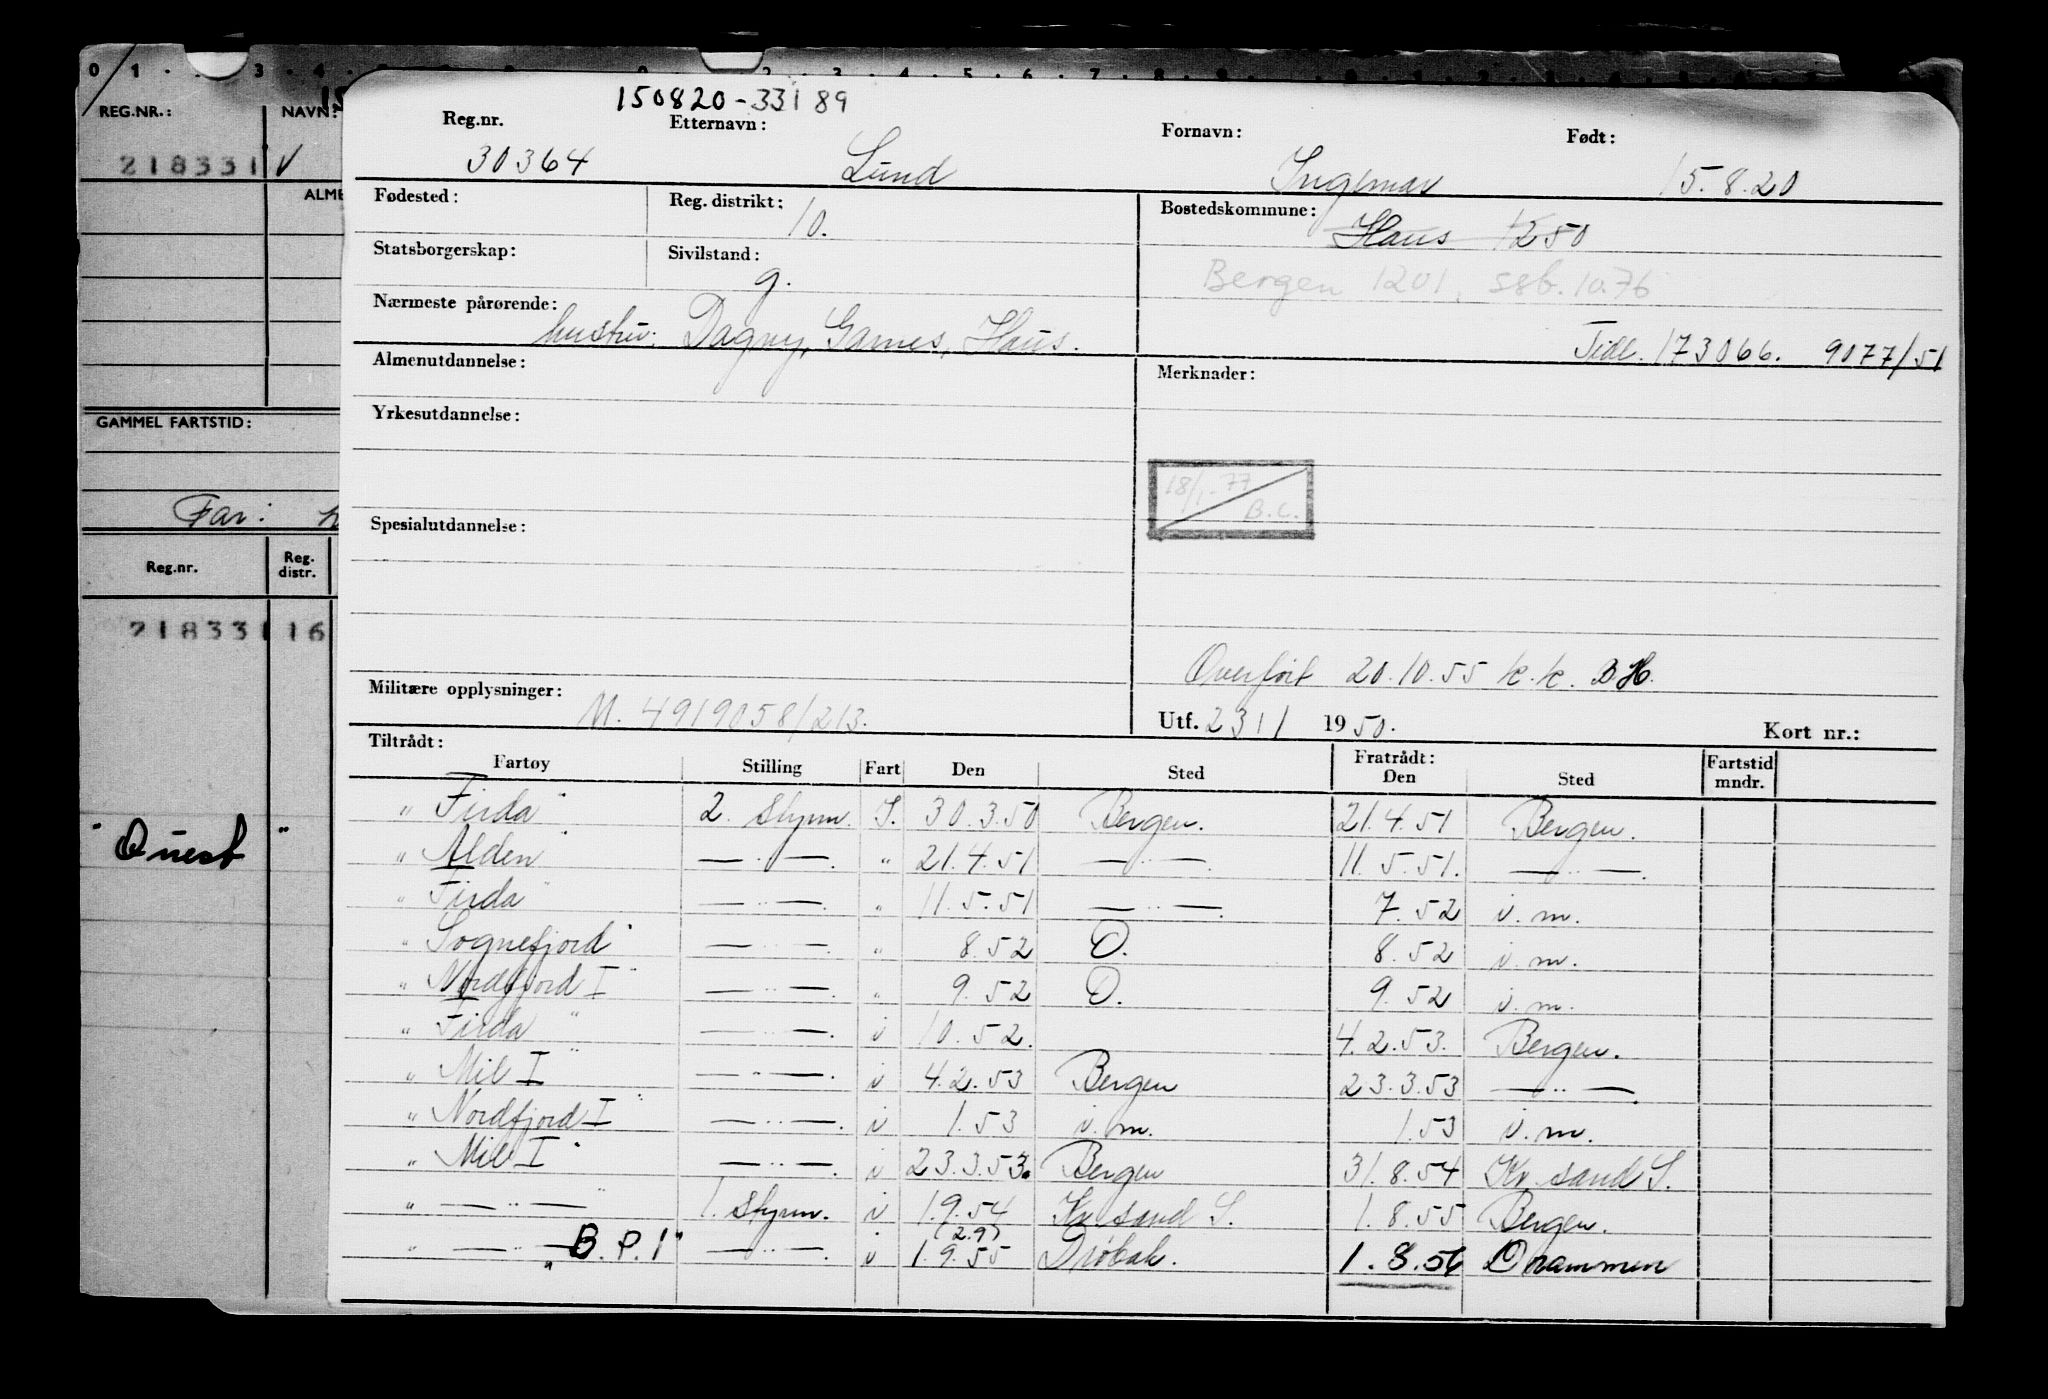 0 1 3 4
REG.NR.: NAVN:
218331 V
ALME
GAMMEL FARTSTID:
Far:
Reg.nr. Reg. distr.
218331 16
"Quest"
150820-33189
Reg.nr. Etternavn: Fornavn: Født:
30364 Lund Ingemar 15.8.20
Fødested: Reg. distrikt: 10. Bostedskommune: Haus 1250
Statsborgerskap: Sivilstand: g. Bergen 1201, ssb. 10.76
Nærmeste pårørende: hustru: Dagny, Garnes, Haus. Tidl. 173066. 9077/51
Almenutdannelse: Merknader:
Yrkesutdannelse:
18/1-77 B.C.
Spesialutdannelse:
Overført 20.10.55 k.k. BH.
Militære opplysninger: M. 4919058/213. Utf. 23 1/ 1950. Kort nr.:
Tiltrådt: Fratrådt:
Fartøy Stilling Fart Den Sted Den Sted Fartstid mndr.
"Firda" 2. styrm. I. 30.3.50 Bergen. 21.4.51 Bergen.
"Alden" — " — . " 21.4.51 — " — . 11.5.51. — " — .
"Firda" — " — . " 11.5.51 — " — . 7.52 i.m.
"Sognefjord" — " — . " 8.52 O. 8.52 i.m.
"Nordfjord I" — " — . " 9.52 O. 9.52 i.m.
"Firda" — " — . i 10.52. 4.2.53. Bergen.
"Mil I" — " — . i 4.2.53 Bergen 23.3.53 — " — .
"Nordfjord I" — " — . i 1.53 i.m. 1.53 i.m.
"Mil I" — " — . i 23.3.53. Bergen 31.8.54 Kr. sand S.
" — " — " 1. styrm. i 1.9.54 Kr. sand S. 1.8.55 Bergen.
(2.9)
" — " — "B.P.1" — " — . i 1.9.55 Drøbak. 1.8.56 Drammen